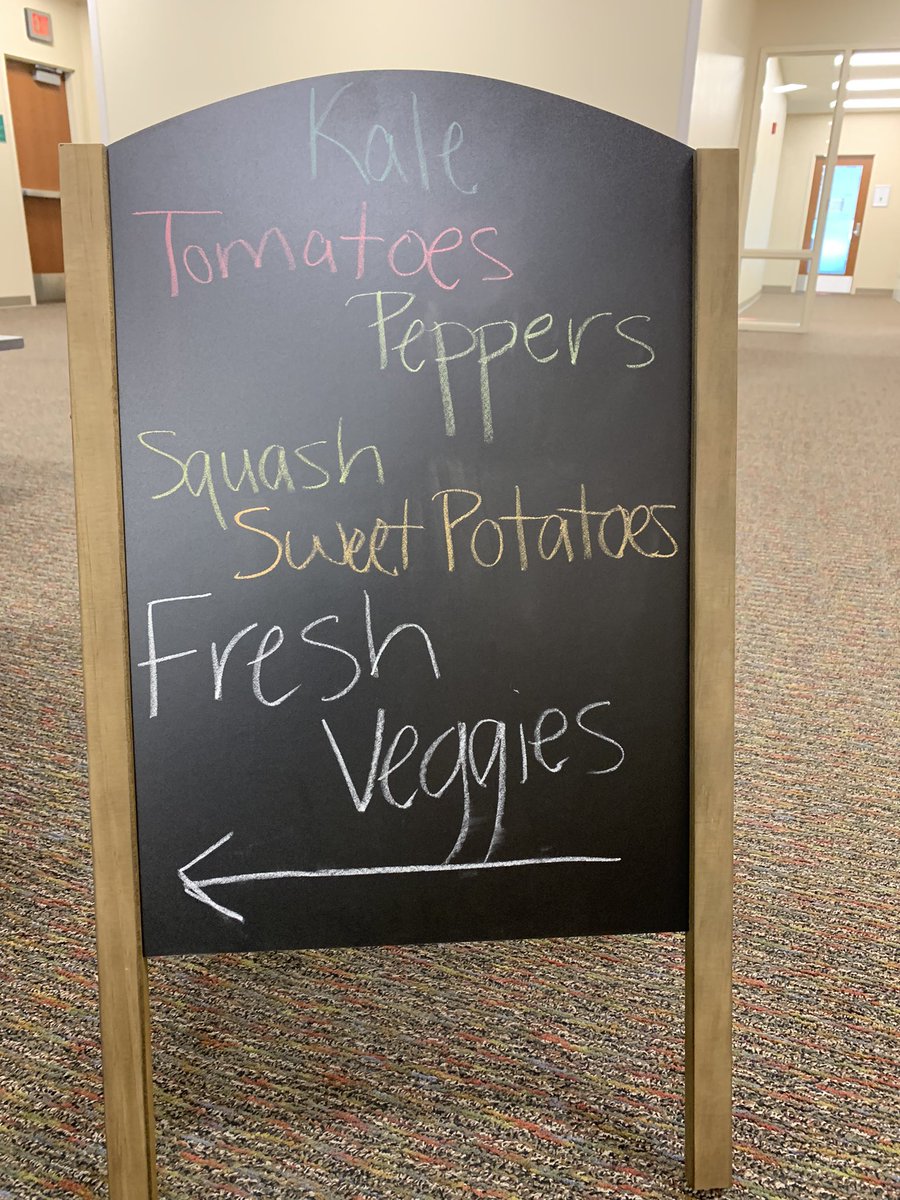 Kale
Tomatoes
Peppers
Squash
Sweet Potatoes
Fresh
Veggies